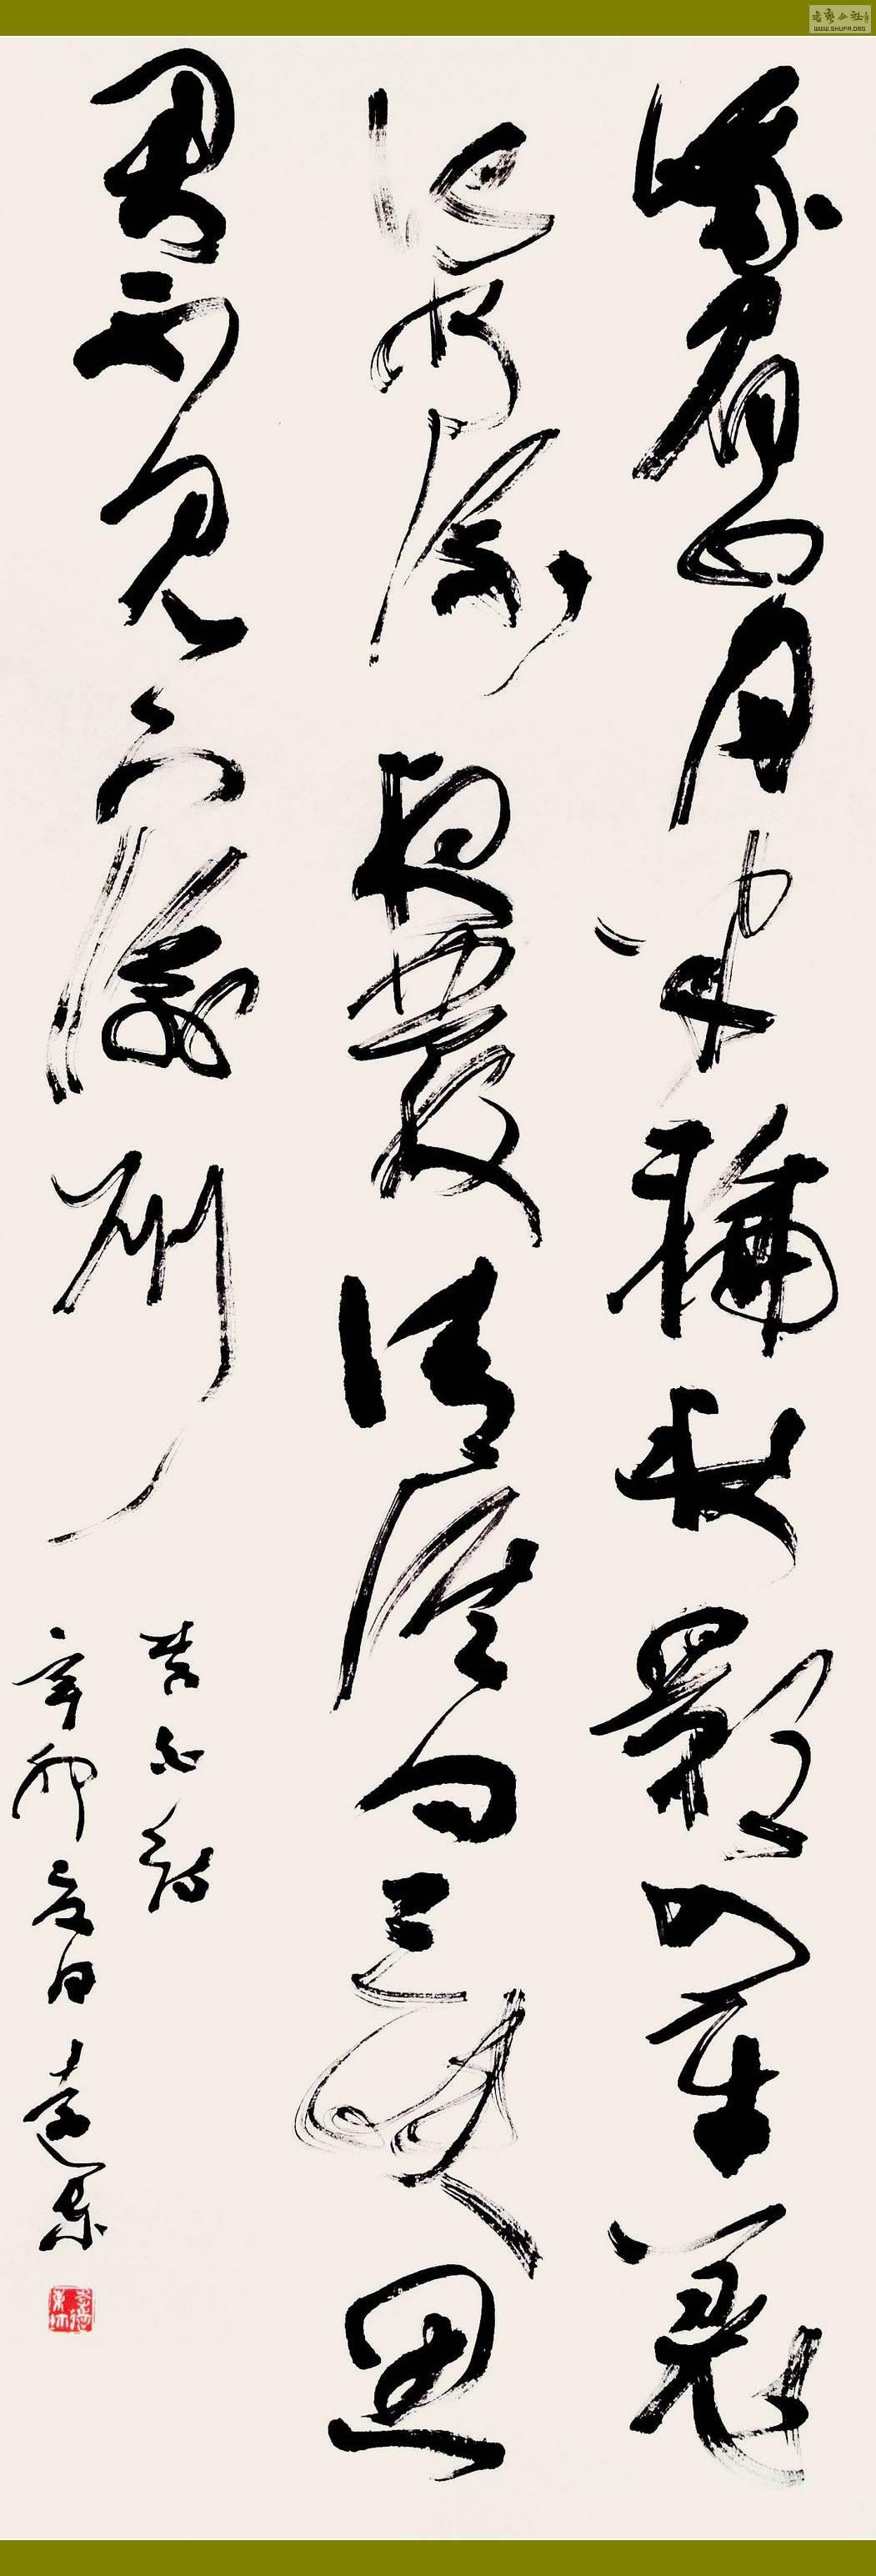 書藝公社
WWW.SHUFA.ORG
峨眉山月半輪秋影入平羌
江水流夜發清溪向三峽思
君不見下渝州
李白詩
辛卯夏日